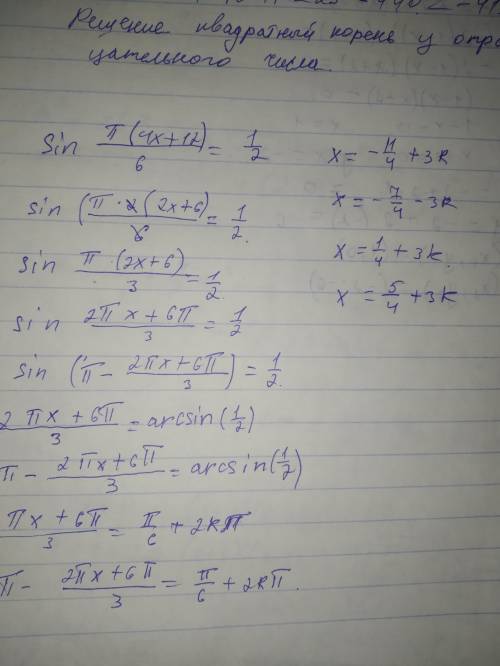 Решение квадратный корень у отри
цательного числа
sin π(4x+12)/6 = 1/2
sin (π·2(2x+6)/6 = 1/2.
sin π·(2x+6)/3 = 1/2.
sin 2πx+6π/3 = 1/2
sin (π - 2πx+6π/3) = 1/2.
2πx+6π/3 = arcsin(1/2)
π - 2πx+6π/3 = arcsin(1/2)
πx+6π/3 = π/6 + 2kπ
π - 2πx+6π/3 = π/6 + 2kπ.
x = -11/4 + 3k
x = -7/4 - 3k
x = 1/4 + 3k.
x = 5/4 + 3k